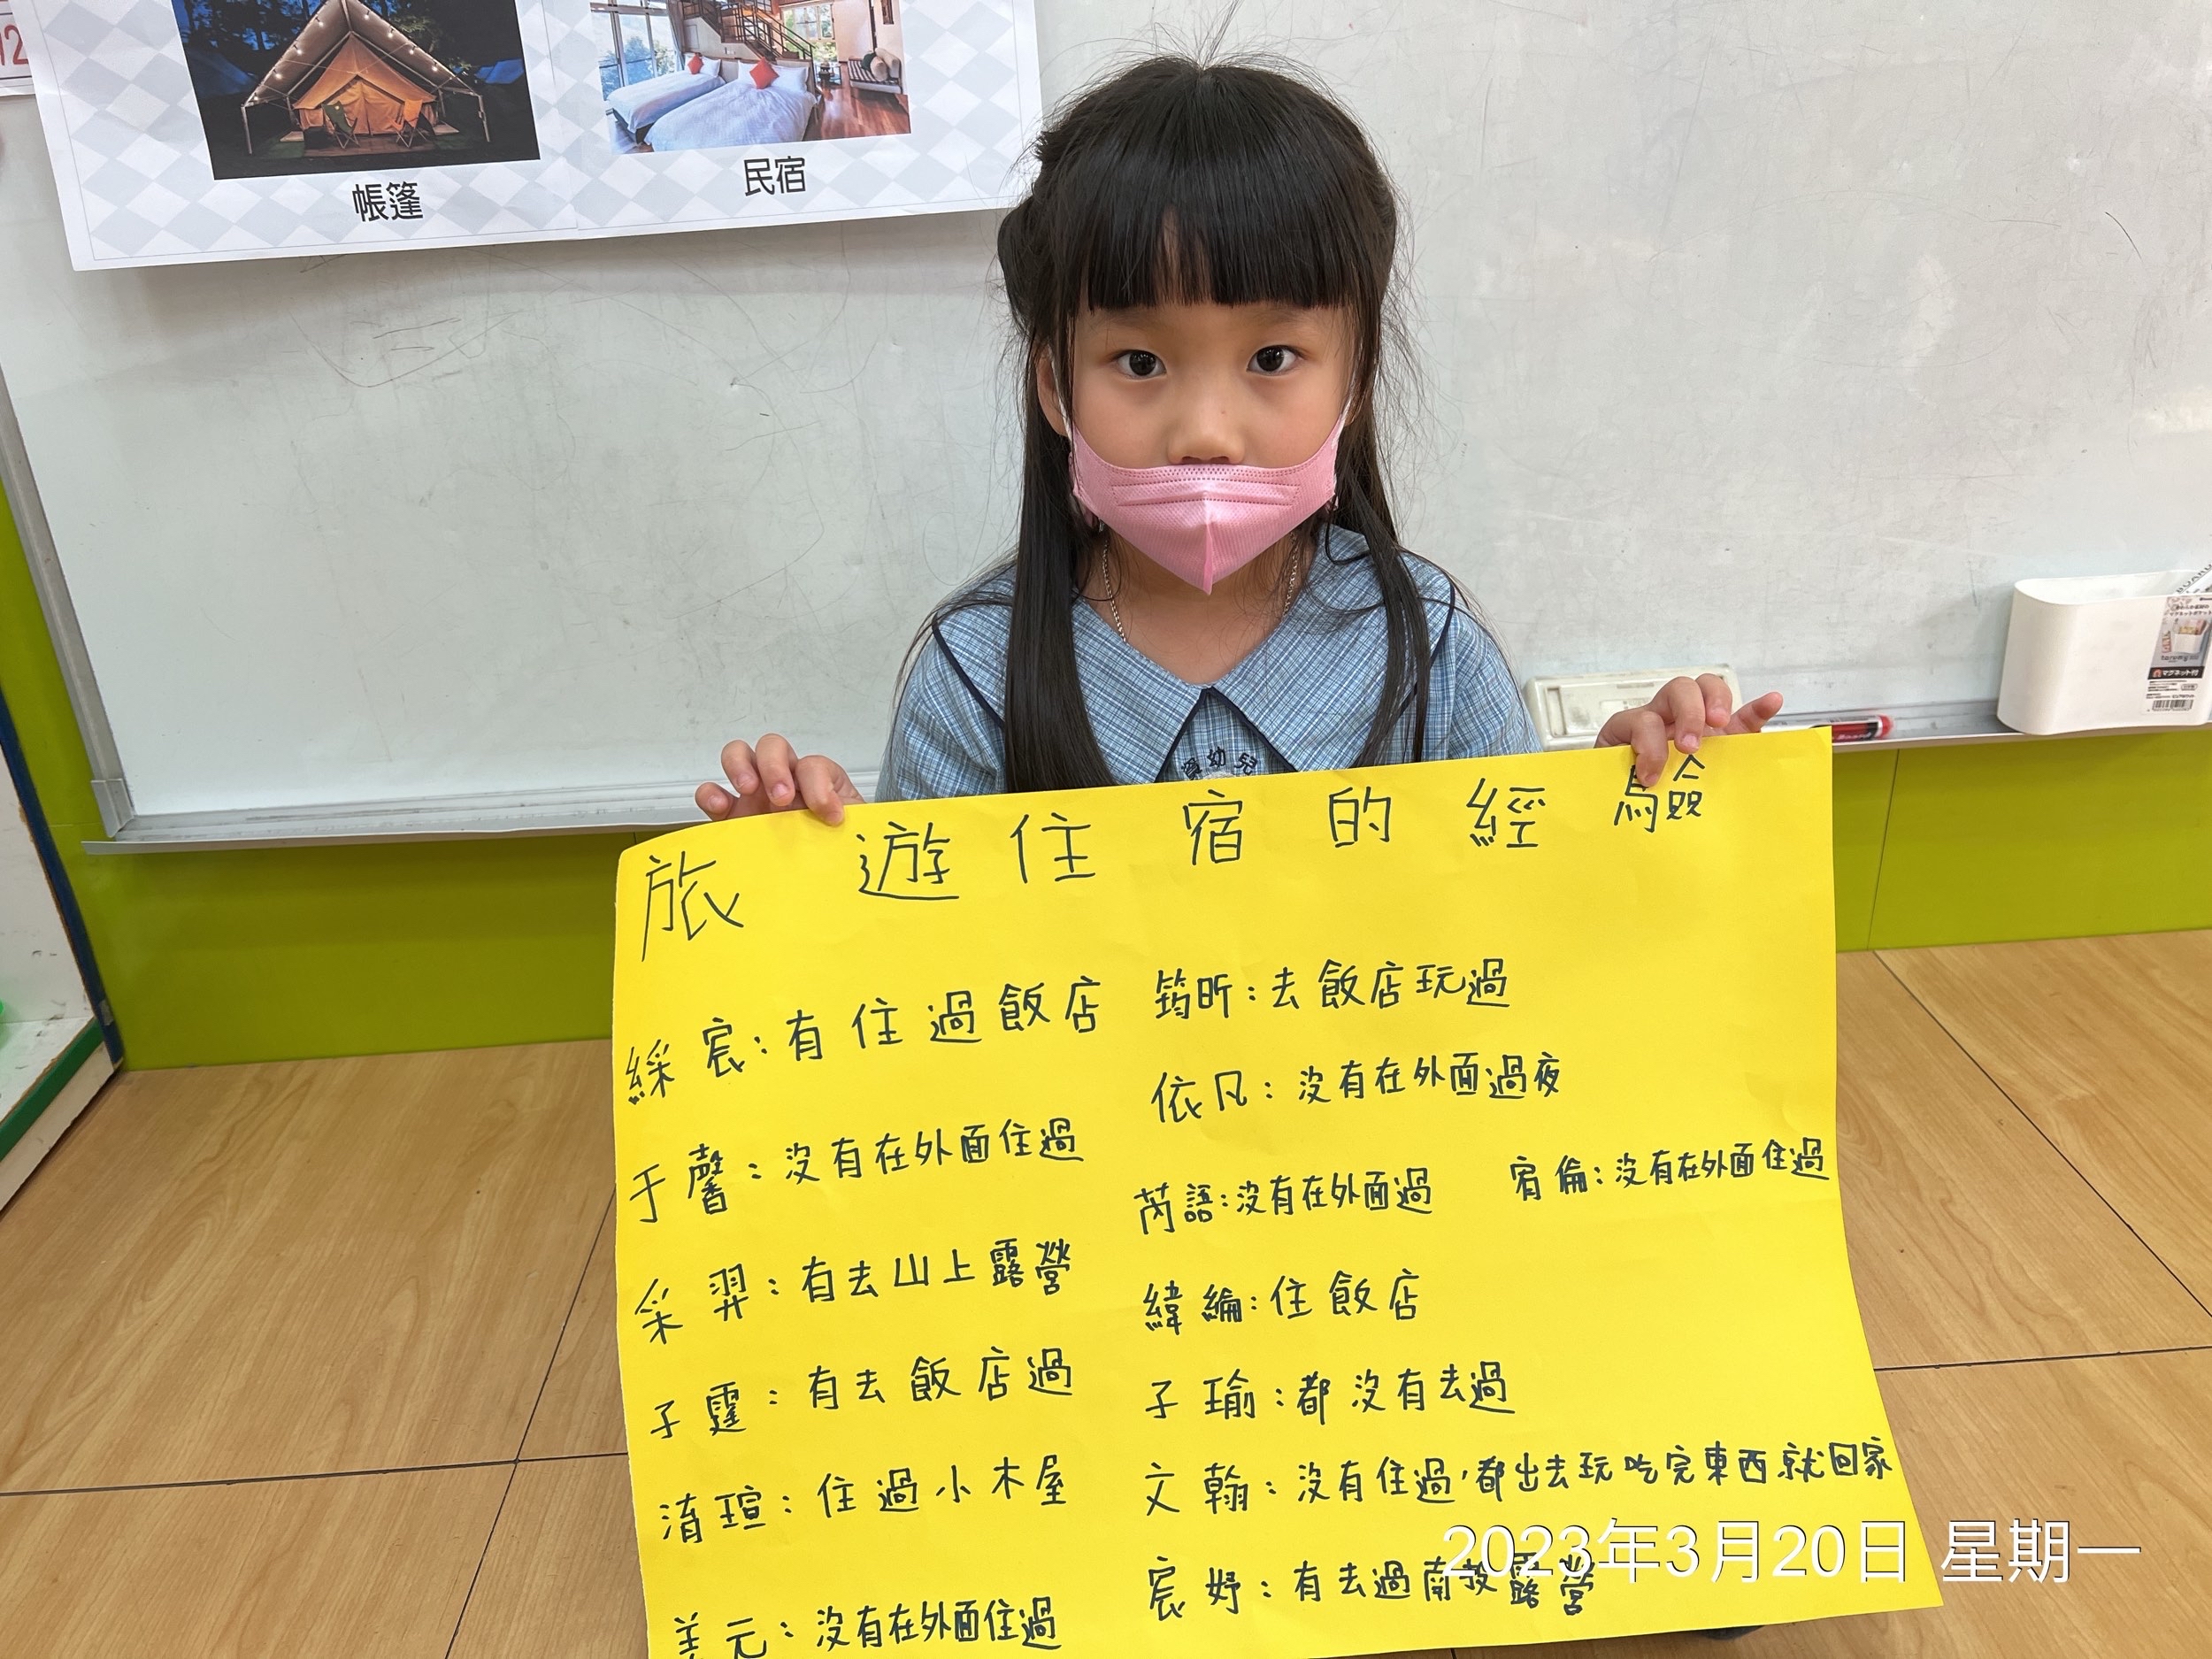 帳篷
民宿
幼兒
旅遊住宿的經驗
綵宸:有住過飯店
于馨:沒有在外面住過
采羿:有去山上露營
子霆:有去飯店過
淯瑄:住過小木屋
美元:沒有在外面住過
筠昕:去飯店玩過
依凡:沒有在外面過夜
芮語:沒有在外面過
宥倫:沒有在外面住過
緯綸:住飯店
子瑜:都沒有去過
文翰:沒有住過,都出去玩吃完東西就回家
宸妤:有去過南投露營
2023年3月20日 星期一